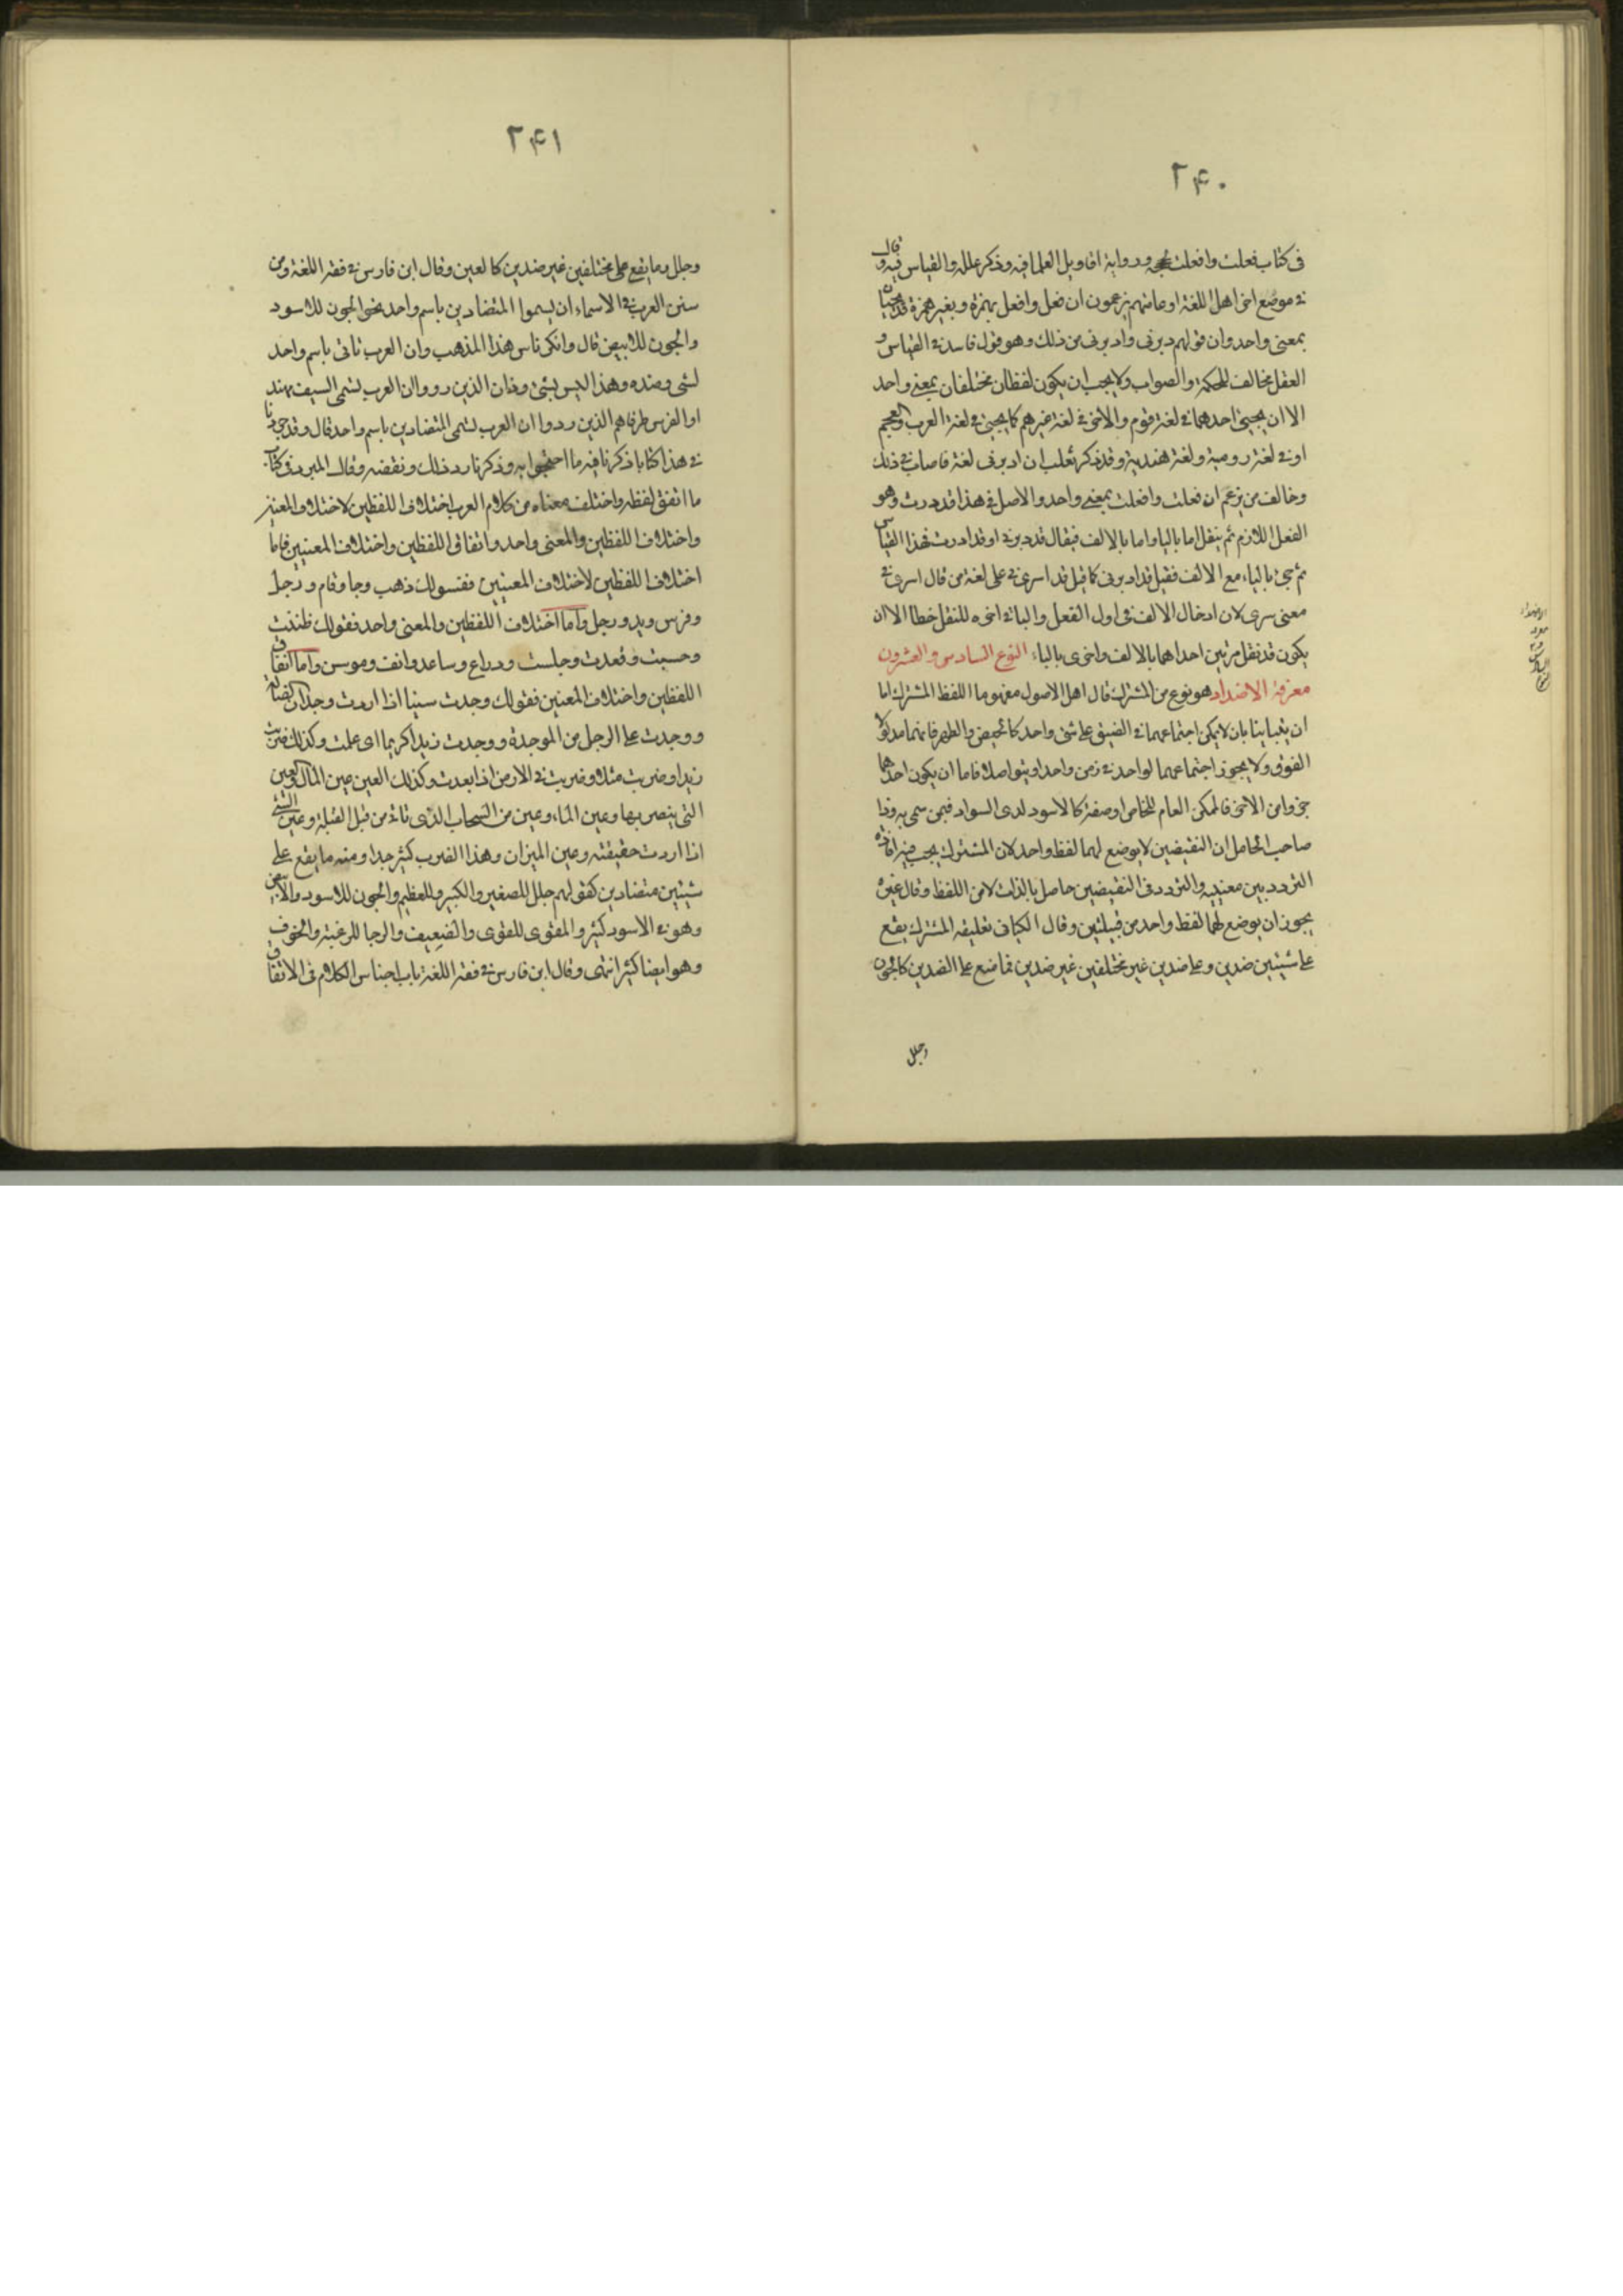 ٢٤٠
فى كتاب فعلت وافعلت بحججه ورواية اقاويل العلما فيه وذكر علله والقياس فيه وقال
فى موضع اخر اهل اللغة او عامتهم يزعمون ان فعل وافعل بهمزة وبغير همزة قد يجيئان
بمعنى واحد وان قولهم دير بى وادير بى من ذلك وهو قول فاسد فى القياس و
العقل مخالف للحكمة والصواب ولا يجب ان يكون لفظان مختلفان بمعنى واحد
الا ان يجيئ احدهما فى لغة قوم والاخر فى لغة غيرهم كما يجيئ فى لغة العرب والعجم
او فى لغة رومية ولغة هندية وقد ذكر ثعلب ان ادير بى لغة فاصاب فى ذلك
وخالف من يزعم ان فعلت وافعلت بمعنى واحد والاصل فى هذا قد درت وهو
الفعل اللازم ثم ينقل اما بالبا واما بالالف فيقال قد دير بى او قد ادرت فهذا القياس
ثم جئ بالباء مع الالف فقيل قد ادير بى كما قيل قد اسرى فى على لغة من قال اسرى فى
معنى سرى لان ادخال الالف فى اول الفعل والبا فى اخره للنقل خطا الا ان
يكون قد نقل مرتين احداهما بالالف واخرى بالباء النوع السادس والعشرون
معرفة الاضداد هو نوع من المشترك قال اهل الاصول مفهوما اللفظ المشترك اما
ان يتباينا بان لا يمكن اجتماعهما فى الصدق على شئ واحد كالحيض والطهر فانهما مدلولا
القرء ولا يجوز اجتماعهما لواحد فى زمن واحد او يتواصلا فاما ان يكون احدهما
جزوا من الاخر فالممكن العام للخاص او صفة كالاسود لذى السواد فيمن سمى به وذا
صاحب الحاصل ان النقيضين لا يوضع لهما لفظ واحد لان المشترك يجب فيه افادة
التردد بين معنييه والتردد فى النقيضين حاصل بالذات لا من اللفظ وقال غيره
يجوز ان يوضع لهما لفظ واحد من قبيلتين وقال الكيا فى تعليقه المشترك يقع
على شيئين ضدين وعلى ضدين غير مختلفين غير ضدين فما ضع على الضدين كالجون
وجلل
٢٤١
وجلل وما يقع على مختلفين غير ضدين كالعين وقال ابن فارس فى فقه اللغة ومن
سنن العرب فى الاسماء ان يسموا المتضادين باسم واحد نحو الجون للاسود
والجون للابيض قال وانكر ناس هذا المذهب وان العرب تاتى باسم واحد
لشئ وضده وهذا ليس بشئ وذان الذين رووا ان العرب تسمى السيف مهند
او الفرس طرفا هم الذين رووا ان العرب تسمى المتضادين باسم واحد قال وقد جردنا
فى هذا كتابا ذكرنا فيه ما احتجوا به وذكرنا رد ذلك ونقضه وقال المبرد فى كتاب
ما اتفق لفظه واختلف معناه من كلام العرب اختلاف اللفظين لاختلاف المعنيين
واختلاف اللفظين والمعنى واحد واتفاق اللفظين واختلاف المعنيين فاما
اختلاف اللفظين لاختلاف المعنيين فقولك ذهب وجا وقام ورجل
وفرس ويد ورجل واما اختلاف اللفظين والمعنى واحد فقولك ظننت
وحسبت وقعدت وجلست وذراع وساعد وانف ومرسن واما اتفاق
اللفظين واختلاف المعنيين فقولك وجدت شيئا اذا اردت وجدان الضالة
ووجدت على الرجل من الموجدة ووجدت زيدا كريما اى علمت وكذلك ضربت
زيدا وضربت مثلا وضربت فى الارض اذا ابعدت وكذلك العين عين المال والعين
التى يبصر بها وعين الماء وعين من السحاب الذى تاتى من قبل القبلة وعين الشئ
اذا اردت حقيقته وعين الميزان وهذا الضرب كثير جدا ومنه ما يقع على
شيئين متضادين كقولهم جلل للصغير والكبير وللعظيم والجون للاسود والابيض
وهو فى الاسود كثير والمقوى للقوى والضعيف والرجا للرغبة والخوف
وهو ايضا كثير انتهى وقال ابن فارس فى فقه اللغة باب اجناس الكلام فى الاتفاق